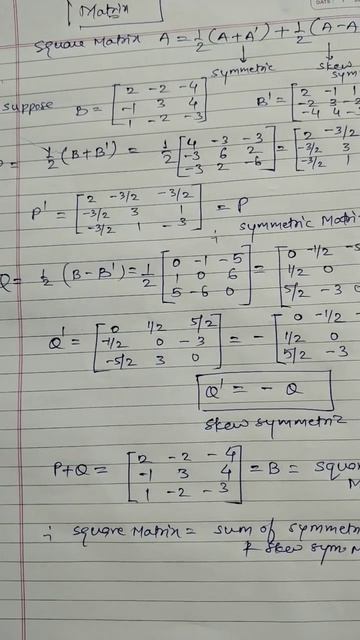 Matrix
Square Matrix A = 1/2 (A+A') + 1/2 (A-A
symmetric skew
sym
suppose B = [2 -2 -4; -1 3 4; 1 -2 -3] B' = [2 -1 1; -2 3 -2; -4 4 -
= 1/2 (B+B') = 1/2 [4 -3 -3; -3 6 2; -3 2 -6] = [2 -3/2; -3/2 3; -3/2 1
P' = [2 -3/2 -3/2; -3/2 3 1; -3/2 1 -3] = P
symmetric Matri
Q = 1/2 (B-B') = 1/2 [0 -1 -5; 1 0 6; 5 -6 0] = [0 -1/2 -5; 1/2 0; 5/2 -3 0
Q' = [0 1/2 5/2; -1/2 0 -3; -5/2 3 0] = - [0 -1/2 -; 1/2 0; 5/2 -3
Q' = - Q
skew symmetric
P+Q = [2 -2 -4; -1 3 4; 1 -2 -3] = B = squa
M
square Matrix = sum of symmetr
& skew sym M